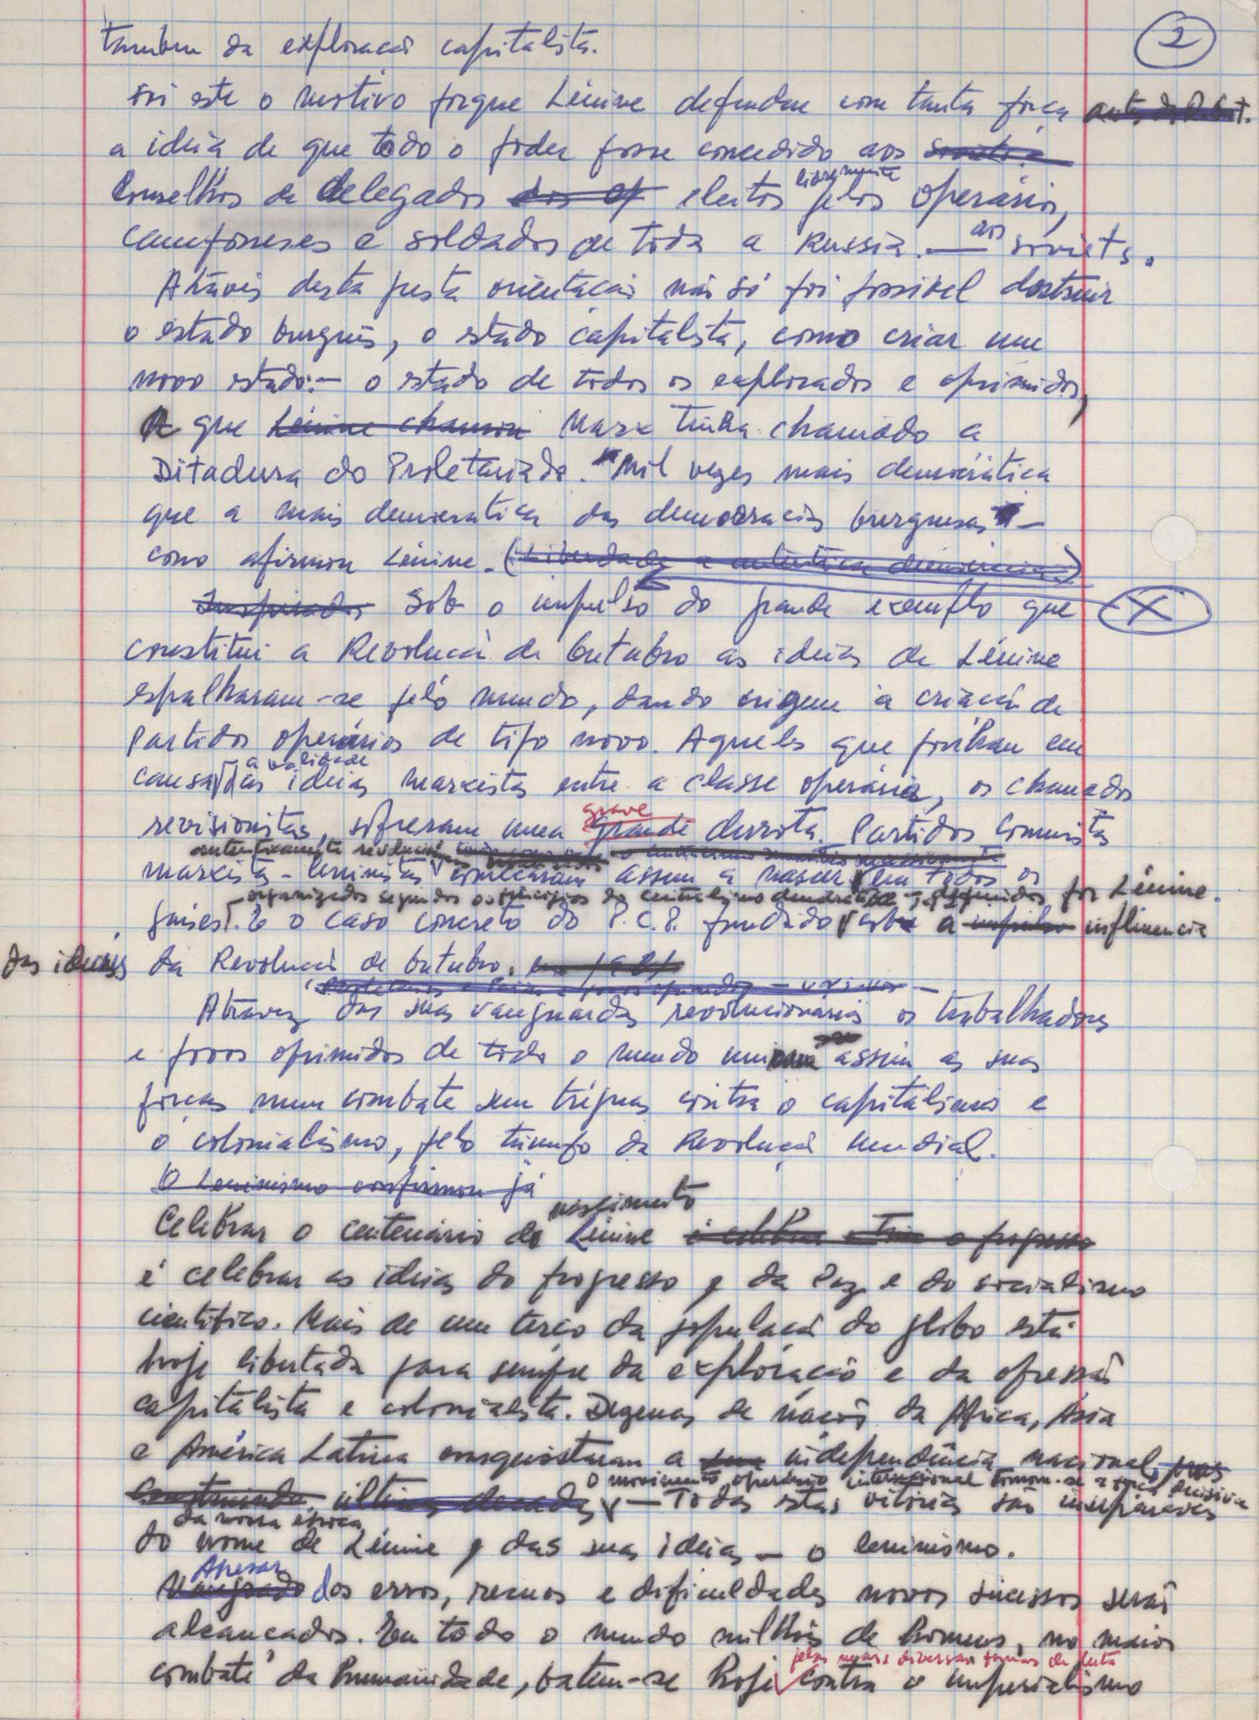 2
tambem da exploração capitalista.
Foi este o motivo porque Lénine defendeu com tanta força
a ideia de que todo o poder fosse concedido aos
Conselhos de delegados eleitos livremente pelos operários,
camponeses e soldados de toda a Russia — aos soviets.
Através desta justa orientação não só foi possivel destruir
o estado burguês, o estado capitalista, como criar um
novo estado: — o estado de todos os explorados e oprimidos,
A que Lénine chamou Marx tinha chamado a
Ditadura do Proletariado. "Mil vezes mais democrática
que a mais democratica das democracias burguesas" —
como afirmou Lénine. (Liberdade e autêntica democracia)
Inspirados Sob o impulso do grande exemplo que X
constitui a Revolução de Outubro as ideias de Lénine
espalharam-se pelo mundo, dando origem à criação de
Partidos operários de tipo novo. Aqueles que punham em
a validade
causa das ideias marxistas entre a classe operária, os chamados
grave
revisionistas, sofreram uma grande derrota. Partidos Comunistas
autenticamente revolucionários
marxistas-leninistas começaram assim a nascer em todos os
organizados segundo os principios do centralismo democrático definidos por Lénine.
paises. É o caso concreto do P.C.P. fundado sob a impulso influencia
das ideias da Revolução de Outubro. em 1921
Atravez das suas vanguardas revolucionárias os trabalhadores
e povos oprimidos de todo o mundo unem assim as suas
forças num combate sem tréguas contra o capitalismo e
o colonialismo, pelo triunfo da Revolução mundial.
O Leninismo confirmou já
nascimento
Celebrar o centenário do Lénine é celebrar o progresso
é celebrar as ideias do progresso e da Paz e do socialismo
cientifico. Mais de um terço da população do globo está
hoje libertada para sempre da exploração e da opressão
capitalista e colonialista. Dezenas de nações da Africa, Ásia
e América Latina conquistaram a sua independência nacional,
O movimento operário internacional tornou-se a força decisiva
da nossa época
— Todas estas vitórias são inseparáveis
do nome de Lénine e das suas ideias — o leninismo.
Apesar
dos erros, recuos e dificuldades novos sucessos serão
alcançados. Em todo o mundo milhões de homens, no maior
pelas mais diversas formas de luta
combate da humanidade, batem-se hoje contra o imperialismo